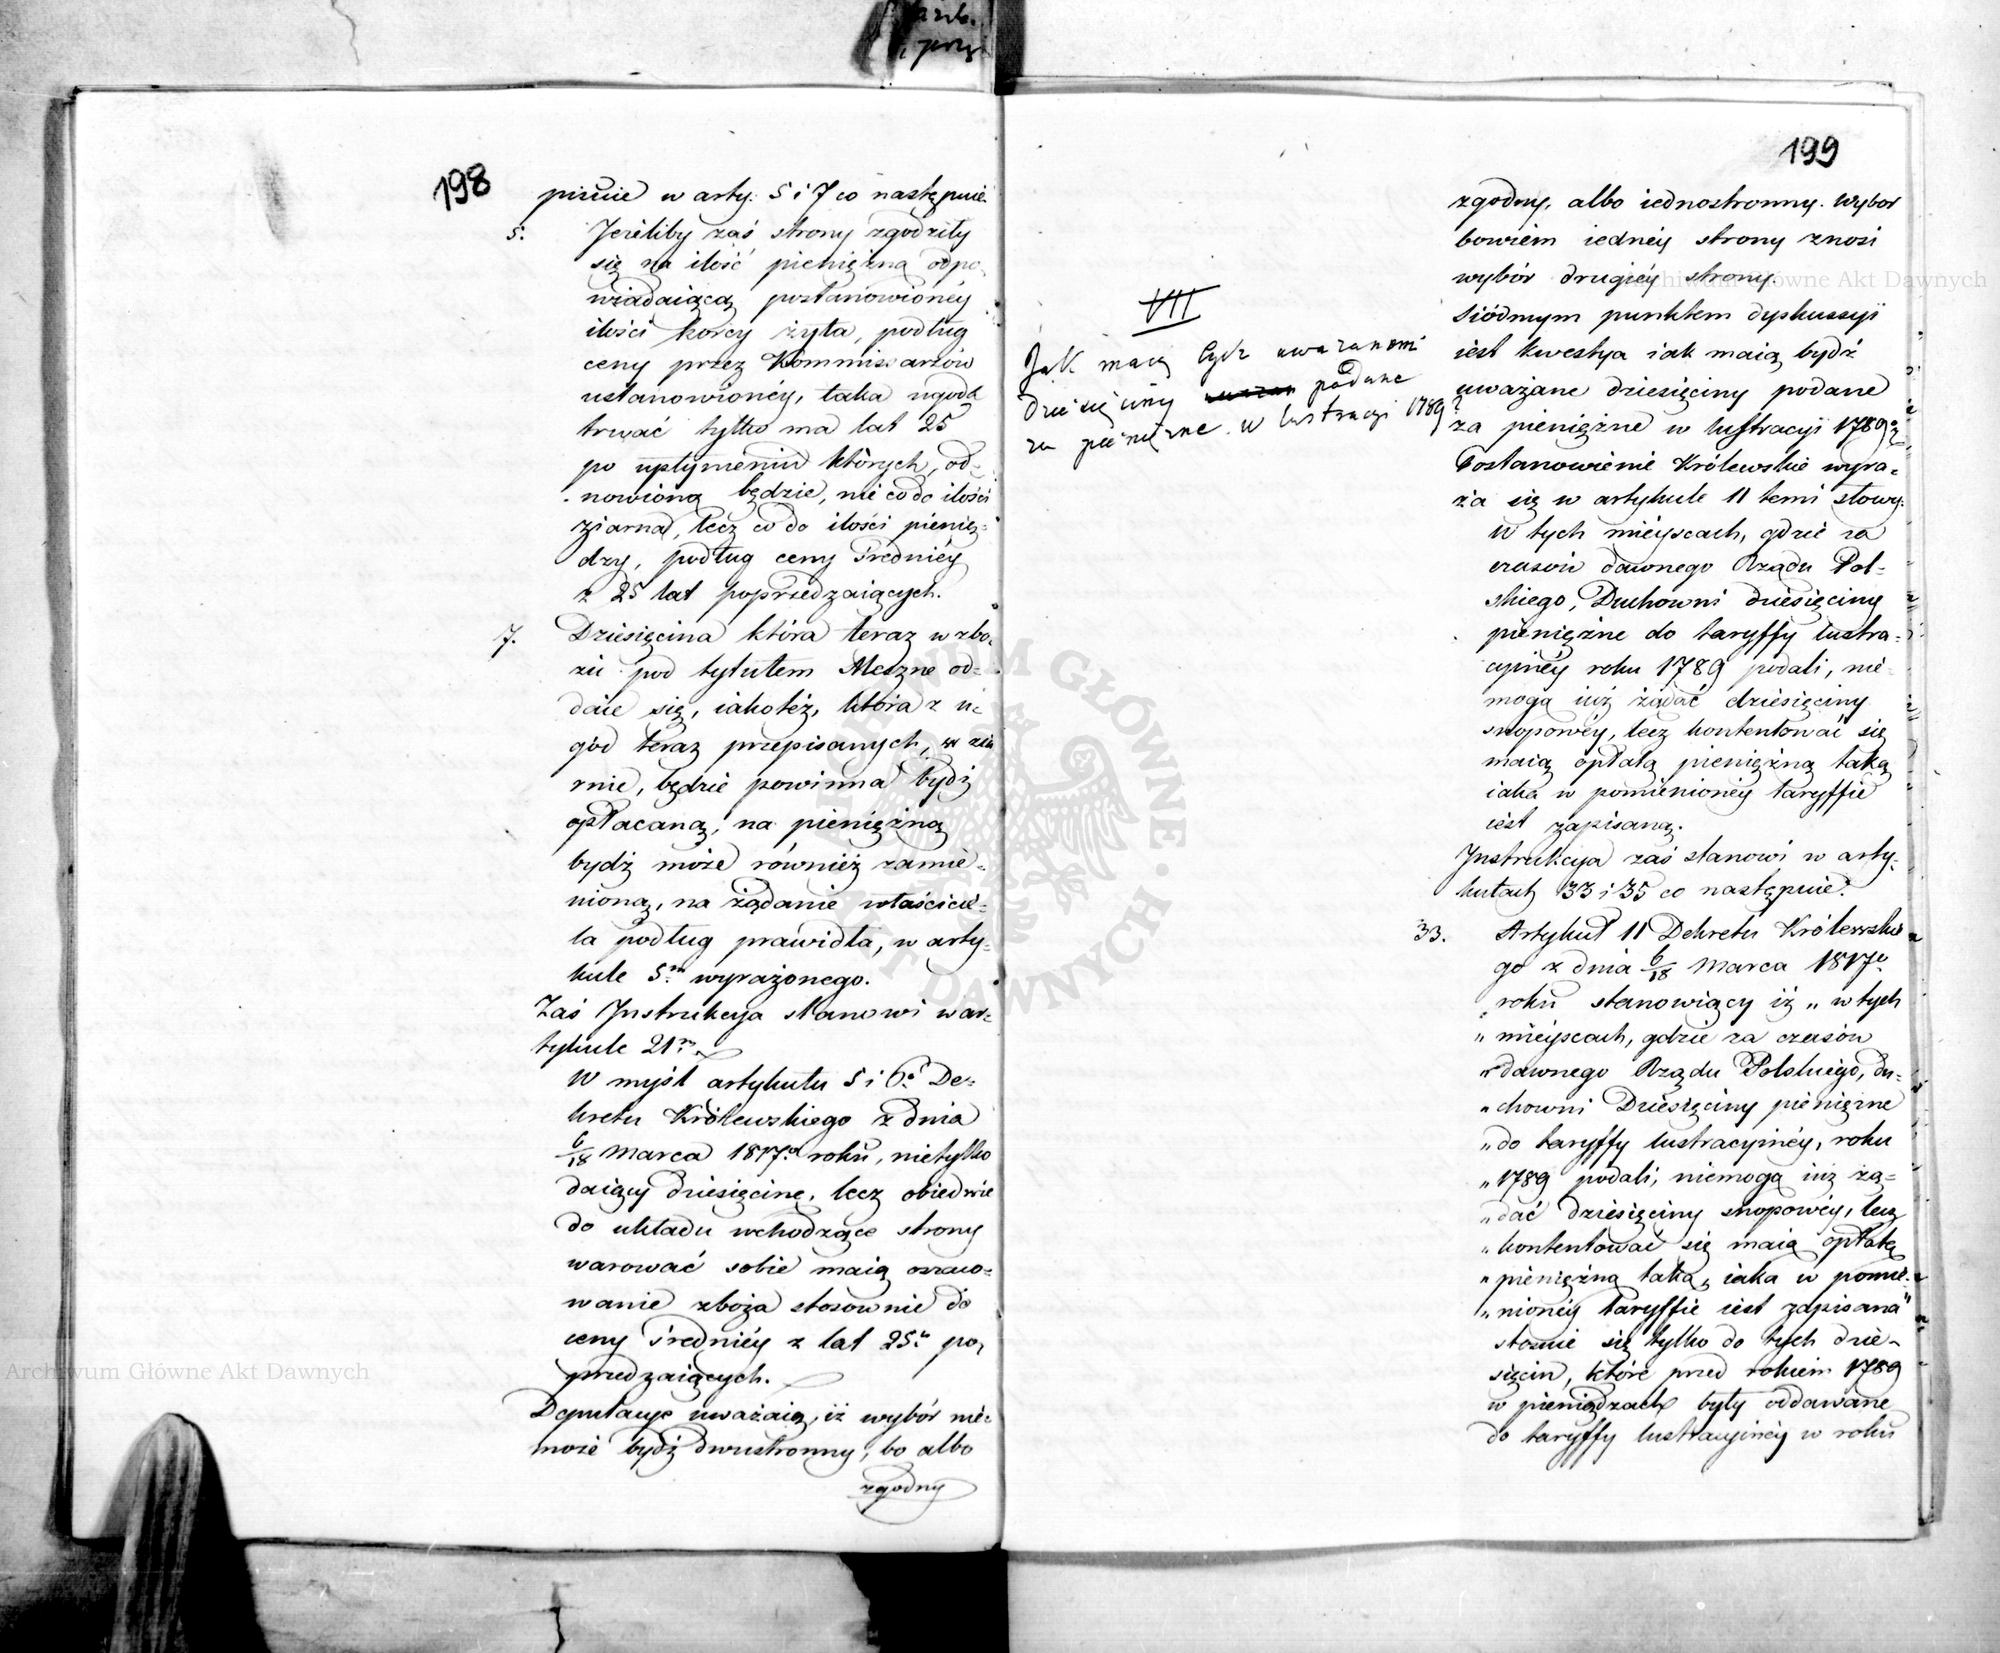 198
pisuie w arty: 5 i 7 co następuie.
5. Jeżeliby zaś strony zgodziły
się na ilość pieniężną odpo-
wiadaiącą postanowionéy
ilości korcy żyta, podług
ceny przez Kommissarzów
ustanowionéy, taka ugoda
trwać tylko ma lat 25
po upłynieniu których, od-
nowioną będzie, nie co do ilości
ziarna, lecz co do ilości pienię-
dzy, podług ceny średniéy
z 25 lat poprzedzaiących.
7. Dziesięcina która teraz w zbo-
żu pod tytułem Meszne od-
daie się, iakoteż, która z u-
gód teraz przepisanych, w zia
rnie, będzie powinna bydź
opłacaną, na pieniężną
bydź może również zamie-
nioną, na żądanie właścicie-
la podług prawidła, w arty-
kule 5m wyrażonego.
Zaś Instrukcya stanowi w ar-
tykule 21m
W myśl artykułu 5 i 6o De-
kretu Królewskiego z dnia
6/18 Marca 1817o roku, nietylko
daiący dziesięcinę, lecz obiedwie
do układu wchodzące strony
warować sobie maią oszaco-
wanie zboża stosownie do
ceny średniéy z lat 25u po-
przedzaiących.
Deputacye uważaią, iż wybór nie-
może bydź dwustronny, bo albo
zgodny
199
zgodny, albo iednostronny. Wybor
bowiem iednéy strony znosi
wybór drugiéy strony.
Siódmym punktem dyskussyi
iest kwestya iak maią bydź
uważane dziesięciny podane
za pieniężne w lustracyi 1789?
Postanowienie Królewskie wyra-
ża się w artykule 11 temi słowy.
W tych mieyscach, gdzie za
czasów dawnego Rządu Pol-
skiego, Duchowni dziesięciny
pieniężne do taryffy lustra-
cyinéy roku 1789 podali, nie
mogą iuż żądać dziesięciny
snopowéy, lecz kontentować się
maią opłatą pieniężną taką
iaka w pomienionéy taryffie
iest zapisaną.
Instrukcya zaś stanowi w arty-
kułach 33 i 35 co następuie.
33. Artykuł 11 Dekretu Królewskie
go z dnia 6/18 Marca 1817o
roku stanowiący iż „ w tych
„ mieyscach, gdzie za czasów
„ dawnego Rządu Polskiego, du-
„ chowni Dziesięciny pieniężne
„ do taryffy lustracyinéy, roku
„ 1789 podali, niemogą iuż żą-
„ dać dziesięciny snopowéy, lecz
„ kontentować się maią opłatą
„ pieniężną taką, iaka w pomie-
„ nionéy Taryffie iest zapisana"
stosuie się tylko do tych dzie-
sięcin, które przed rokiem 1789
w pieniądzach były oddawane
do taryffy lustracyinéy w roku
VII
Jak mają być uważanemi
dziesięciny podane
za pieniężne w lustracyi 1789?
Archiwum Główne Akt Dawnych
Archiwum Główne Akt Dawnych
ARCHIWUM GŁÓWNE AKT DAWNYCH